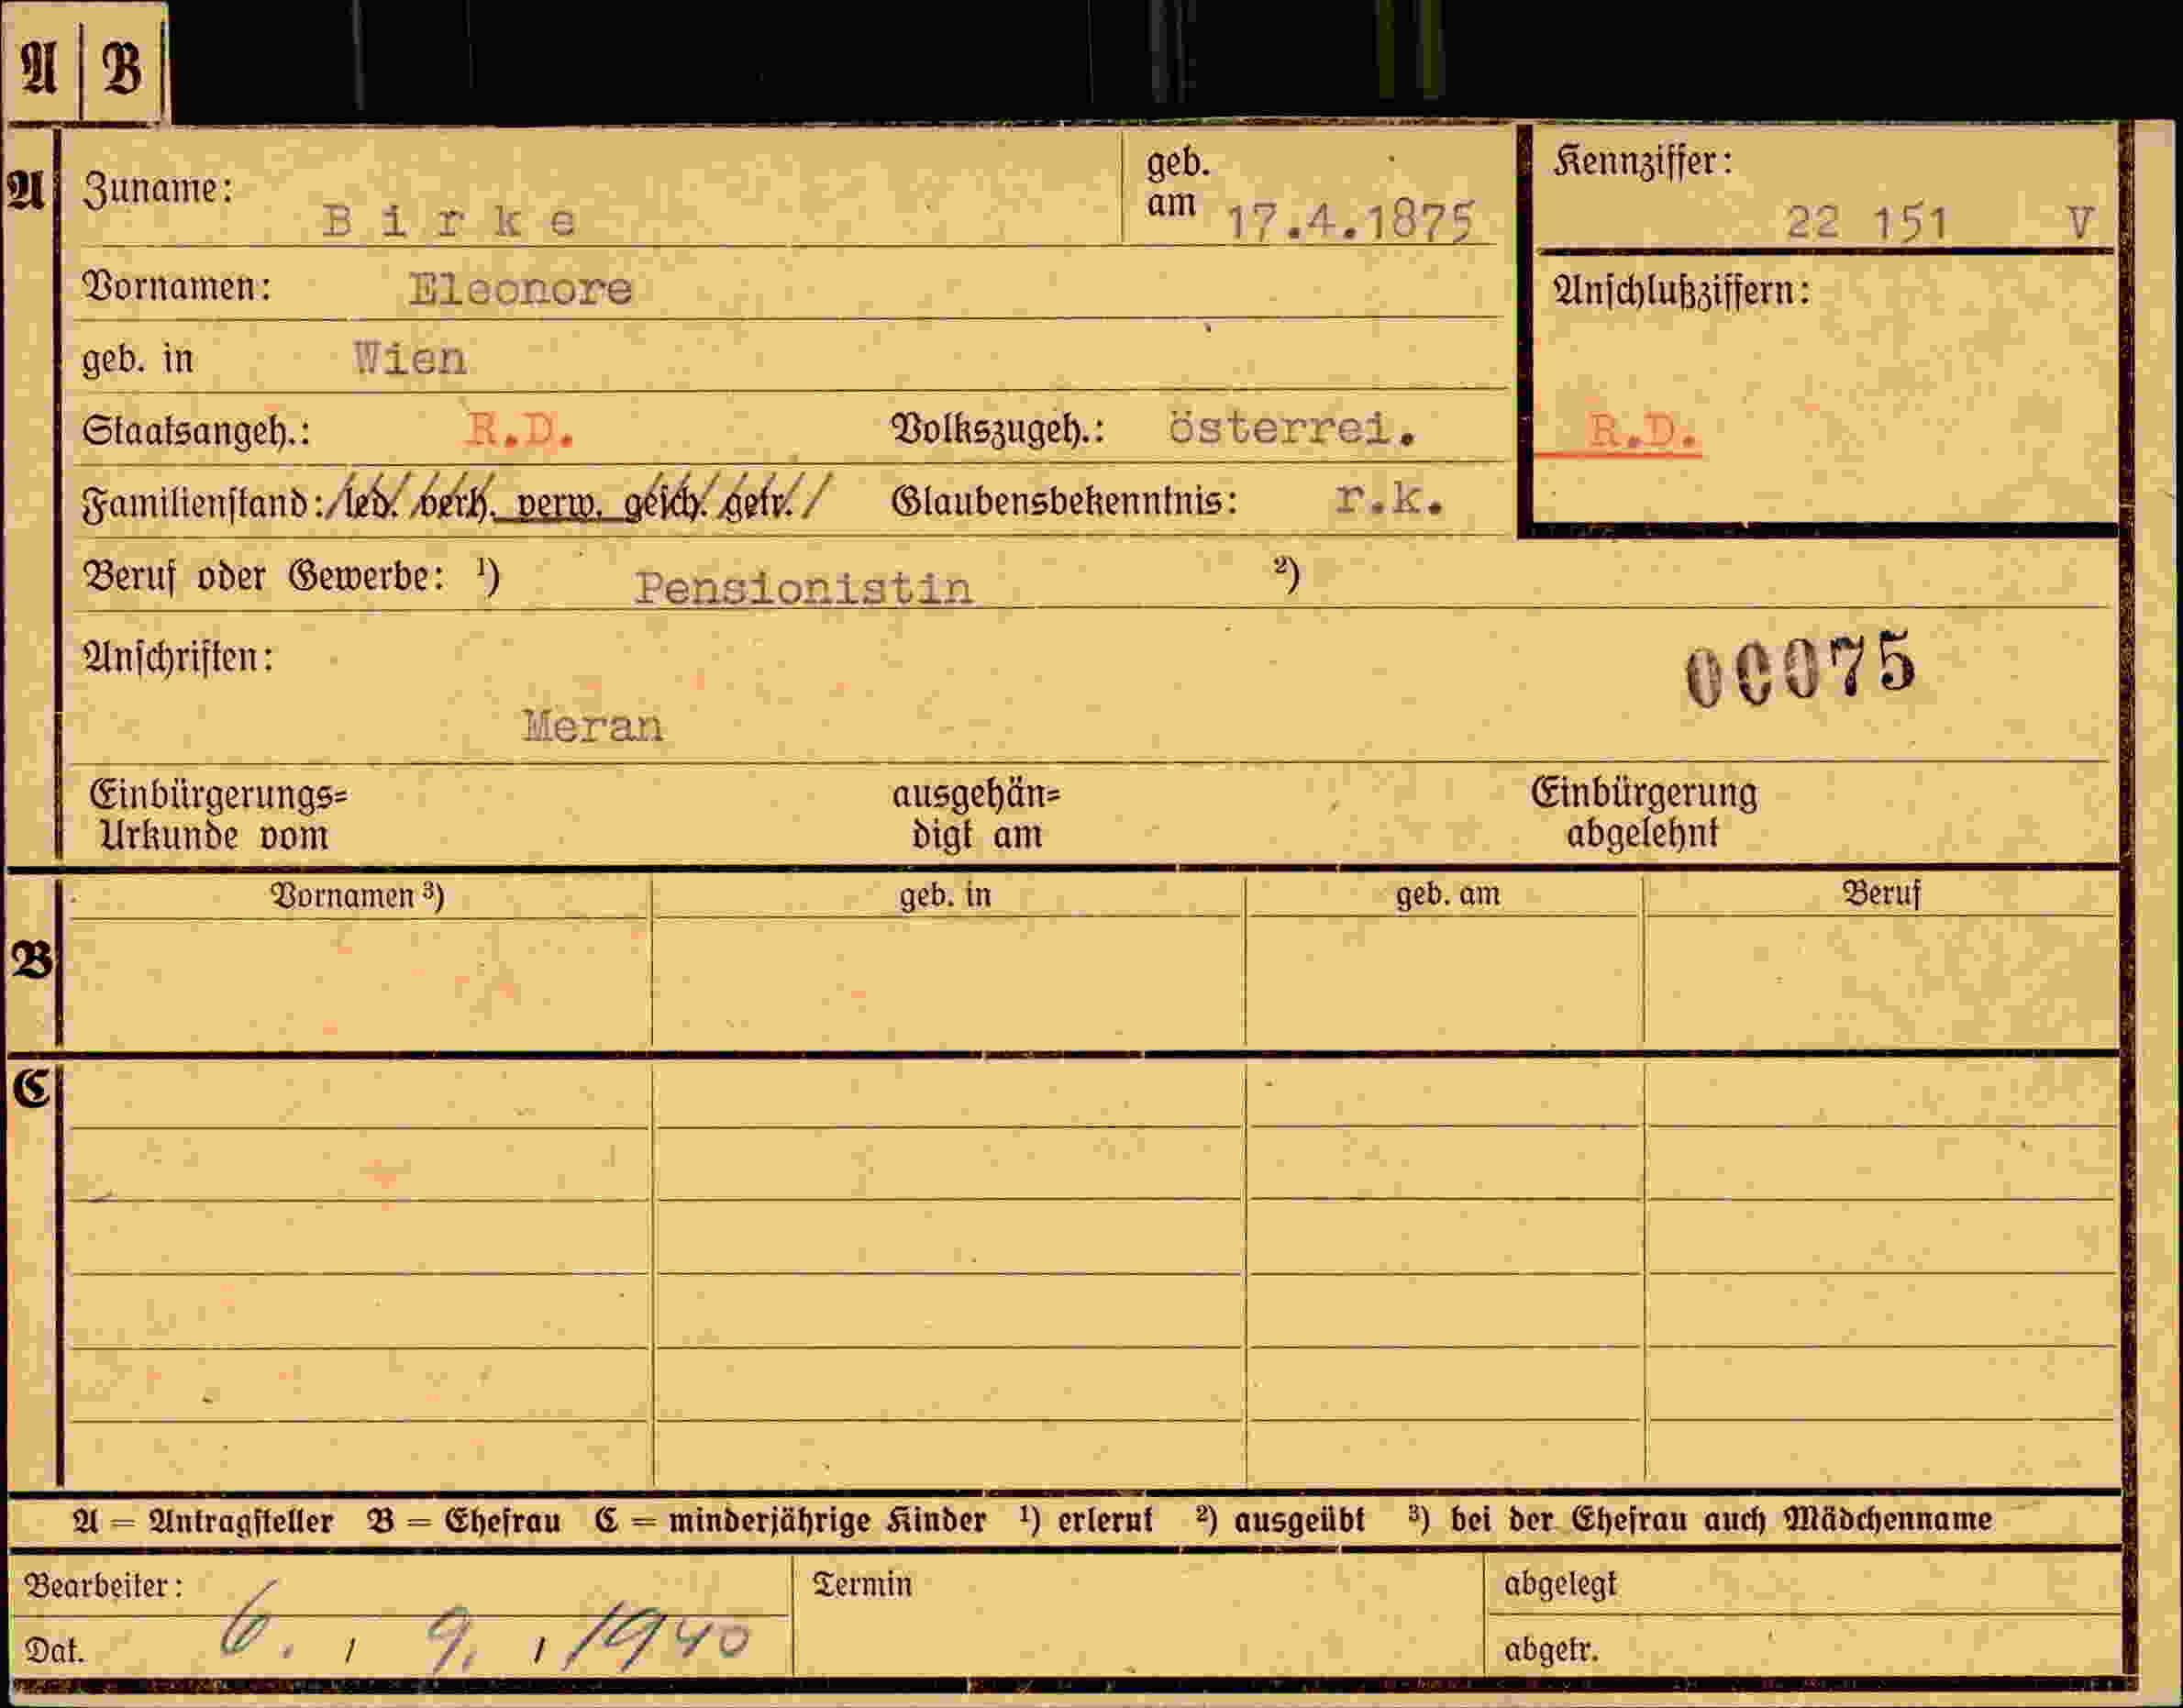 A B
A Zuname: Birke geb. am 17.4.1875 Kennziffer: 22 151 V
Vornamen: Eleonore Anschlußziffern:
geb. in Wien
Staatsangeh.: R.D. Volkszugeh.: österrei. R.D.
Familienstand: led. verh. verw. gesch. getr. Glaubensbekenntnis: r.k.
Beruf oder Gewerbe: ¹) Pensionistin ²)
Anschriften: 00075
Meran
Einbürgerungs= ausgehän= Einbürgerung
Urkunde vom digt am abgelehnt
Vornamen ³) geb. in geb. am Beruf
B
C
A = Antragsteller B = Ehefrau C = minderjährige Kinder ¹) erlernt ²) ausgeübt ³) bei der Ehefrau auch Mädchenname
Bearbeiter: Termin abgelegt
Dat. 6. / 9. / 1940 abgetr.